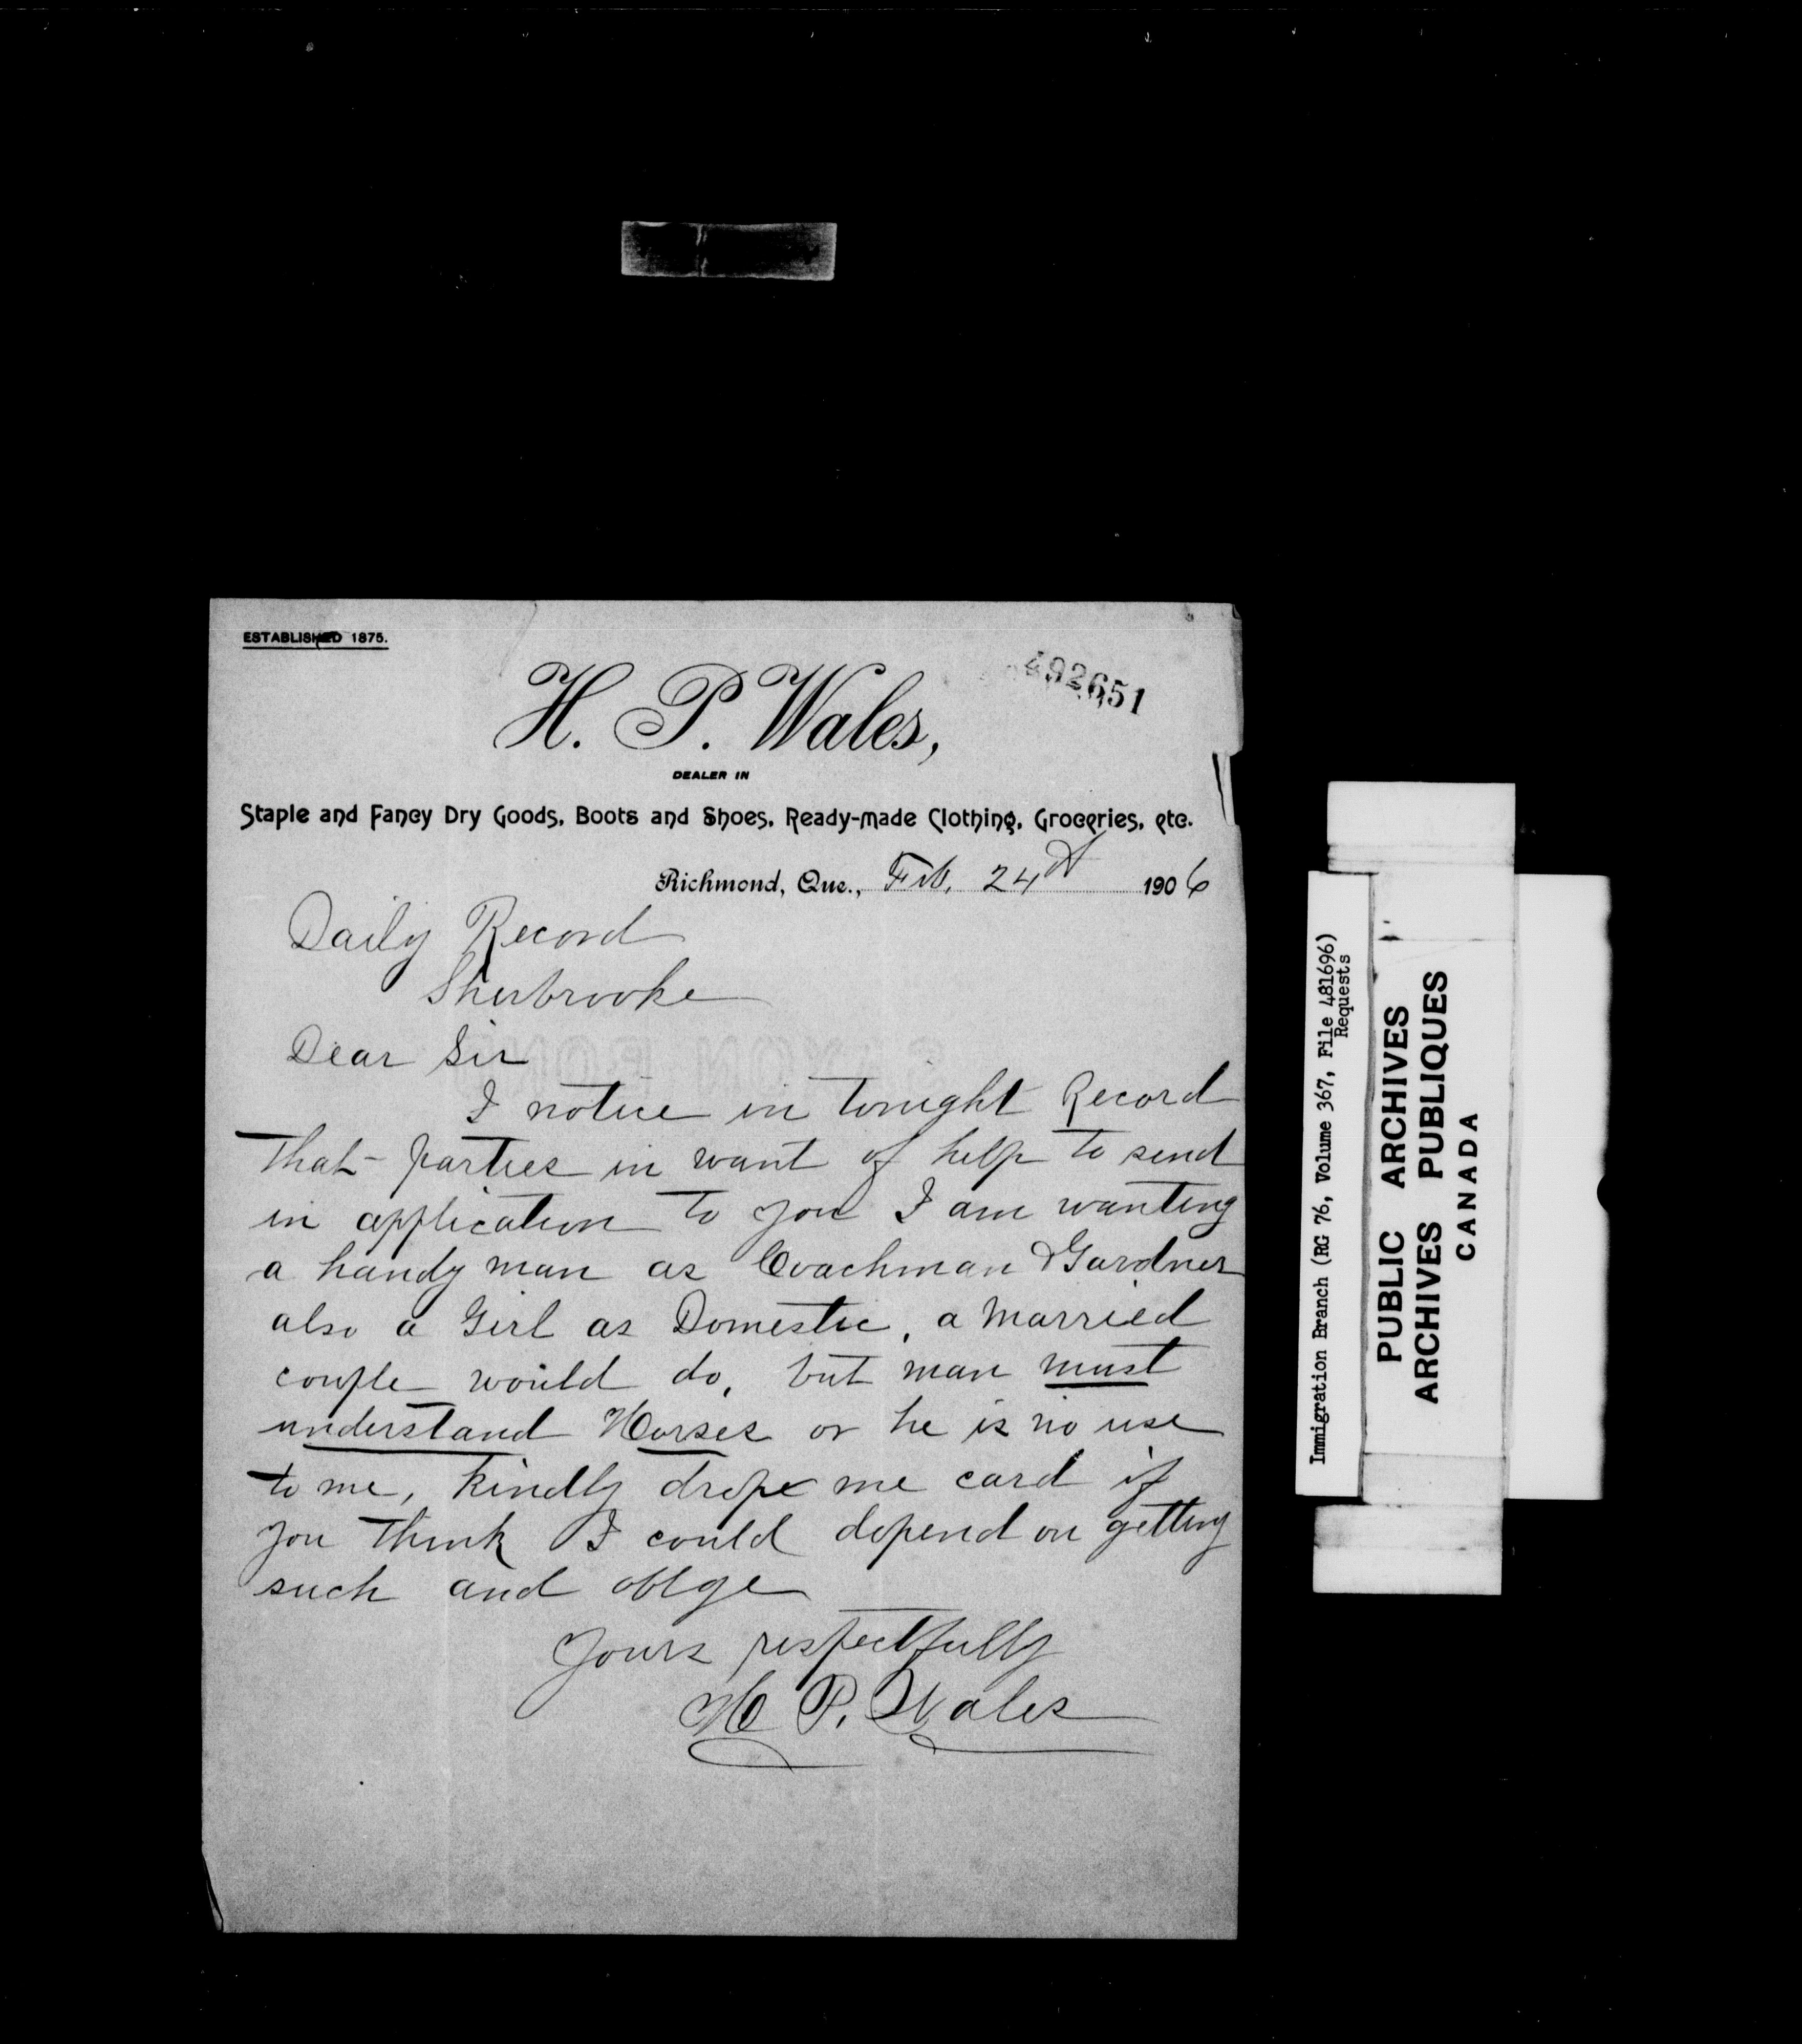 ESTABLISHED 1875.
492651
H. P. Wales,
DEALER IN
Staple and Fancy Dry Goods, Boots and Shoes, Ready-made Clothing, Groceries, etc.
Richmond, Que., Feb. 24th 1906
Daily Record
Sherbrooke
Dear Sir
I notice in tonight Record
that parties in want of help to send
in application to you I am wanting
a handy man as Coachman & Gardner
also a Girl as Domestic, a Married
couple would do, but man must
understand Horses or he is no use
to me, kindly drope me card if
you think I could depend on getting
such and oblge
Yours respectfully
H P. Wales
Immigration Branch (RG 76, Volume 367, File 481696)
Requests
PUBLIC ARCHIVES
ARCHIVES PUBLIQUES
CANADA